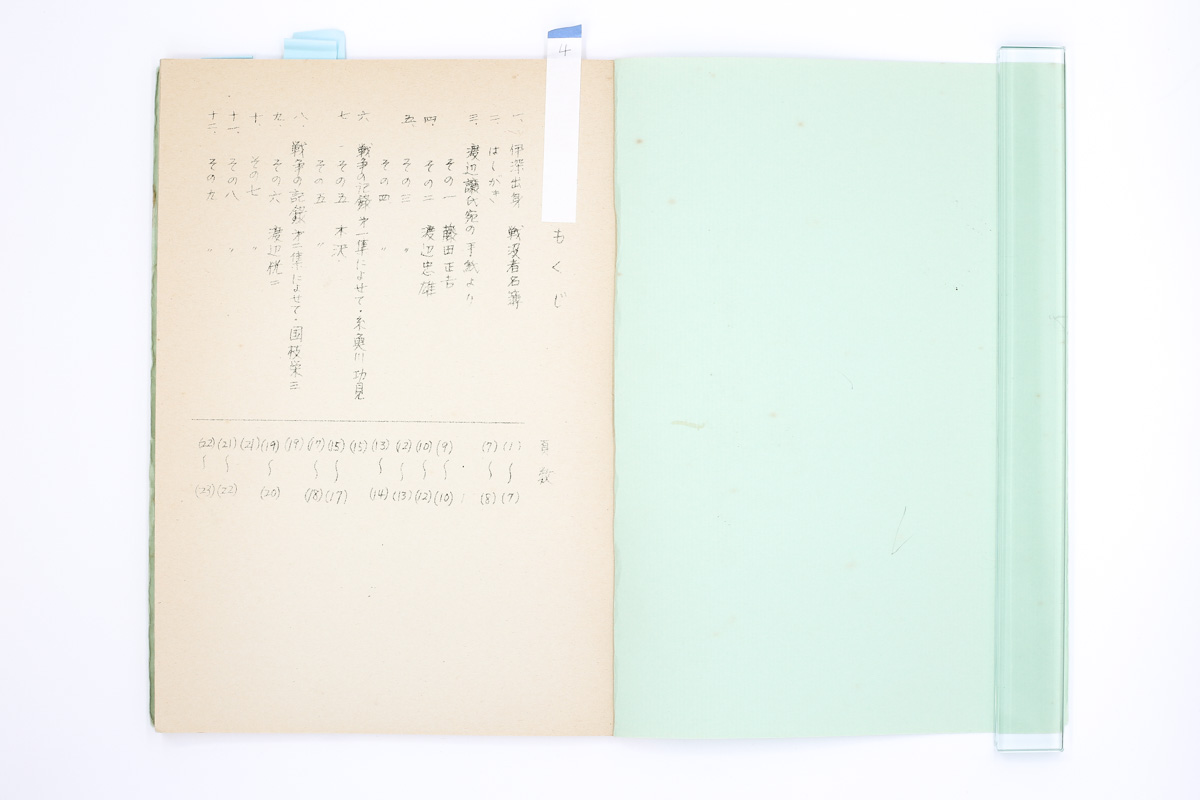 4
もくじ
頁数
一、伊深出身 戦没者名簿 (1)〜(7)
二、はしがき (7)〜(8)
三、渡辺譲氏宛の手紙より
その一 藤田正吉 (9)〜(10)
四、その二 渡辺忠雄 (10)〜(12)
五、その三 〃 (12)〜(13)
その四 〃 (13)〜(14)
六、戦争の記録 第一集によせて・糸魚川 (15)
七、その五 木沢 (15)〜(17)
その五 〃 (17)〜(18)
八、戦争の記録 第二集によせて・国枝栄三 (19)
九、その六 渡辺悦二 (19)〜(20)
十、その七 〃 (21)
十一、その八 〃 (21)〜(22)
十二、その九 〃 (22)〜(23)